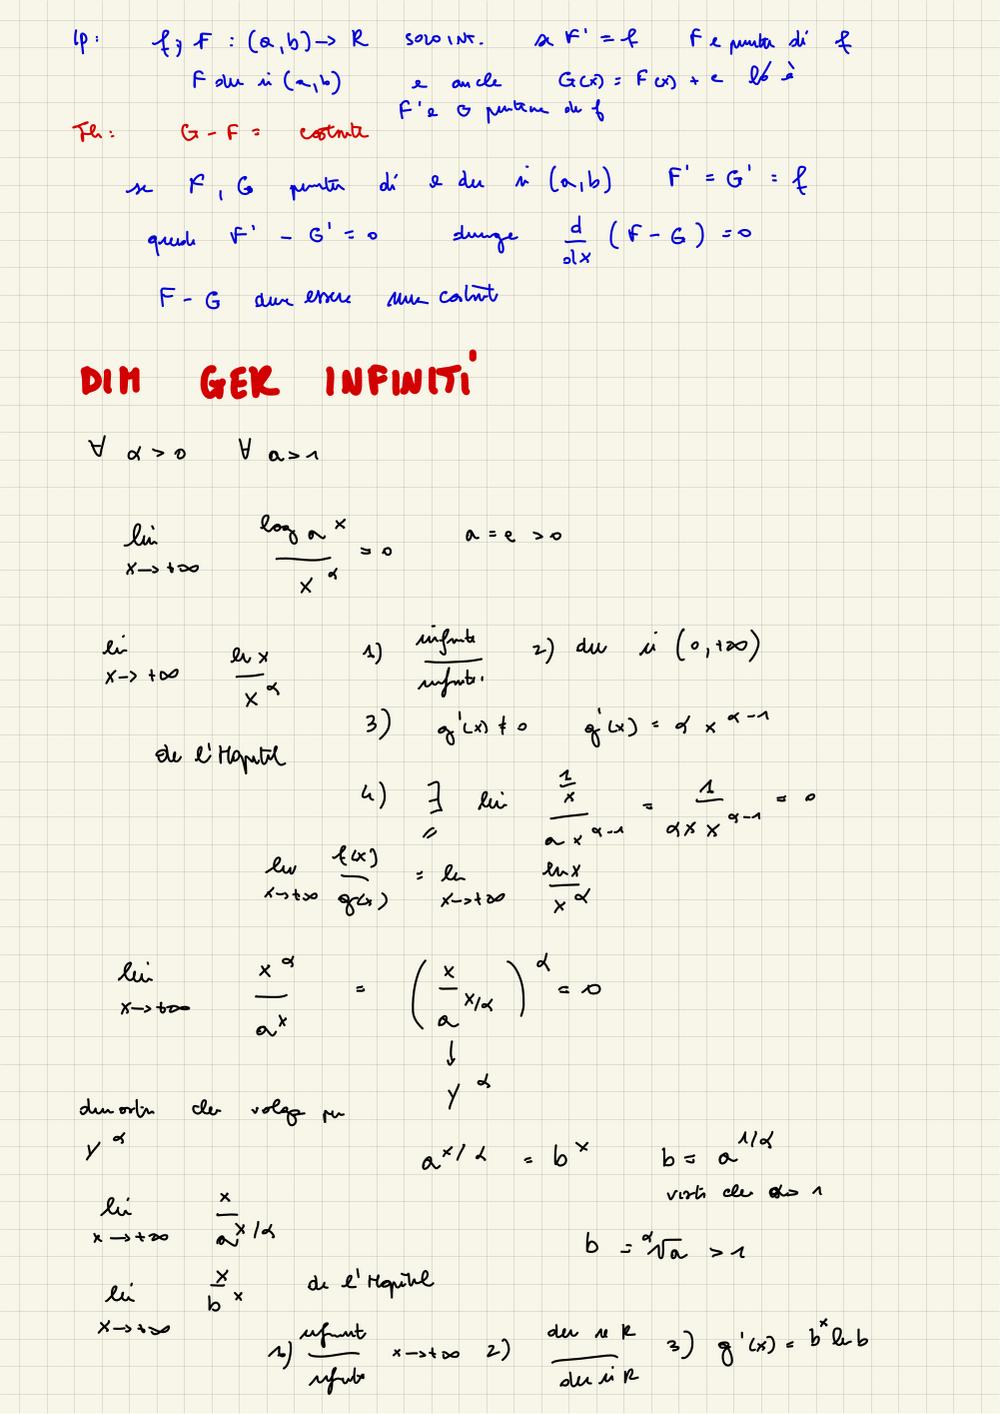 Ip: f, F : (a,b) → R SOLO INT. se F' = f F e di f
F in (a,b) e anche G(x) = F(x) + c lo è
F e G di f
Th: G - F = costante
se F, G di e in (a,b) F' = G' = f
quindi F' - G' = 0 dunque d/dx (F - G) = 0
F - G deve essere una costante
DIM GER INFINITI
∀ α > 0 ∀ a > 1
lim x → +∞ log a x / x^α = 0 a = e > 0
lim x → +∞ ln x / x^α 1) infinito / infinito 2) der in (0, +∞)
3) g'(x) ≠ 0 g'(x) = α x^(α-1)
de l'Hopital
4) ∃ lim (1/x) / (a x^(α-1)) = 1 / (α x x^(α-1)) = 0
=
lim x → +∞ f(x) / g(x) = lim x → +∞ ln x / x^α
lim x → +∞ x^α / a^x = (x / a^(x/α))^α = 0
↓
y^α
dimostro che valga per
y^α
a^(x/α) = b^x b = a^(1/α)
visto che α > 1
lim x → +∞ x / a^(x/α)
b = α√a > 1
lim x → +∞ x / b^x de l'Hopital
1) infinito / infinito x → +∞ 2) der in R / der in R 3) g'(x) = b^x ln b